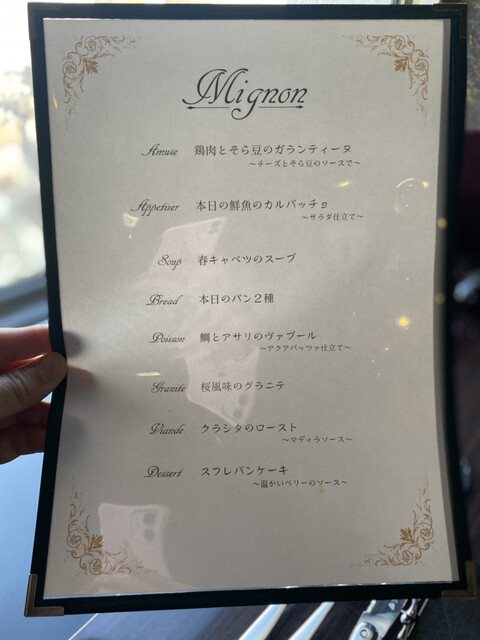 Mignon
Amuse 鶏肉とそら豆のガランティーヌ
～チーズとそら豆のソースで～
Appetiser 本日の鮮魚のカルパッチョ
～サラダ仕立て～
Soup 春キャベツのスープ
Bread 本日のパン２種
Poisson 鯛とアサリのヴァプール
～アクアパッツァ仕立て～
Granite 桜風味のグラニテ
Viande クラシタのロースト
～マディラソース～
Dessert スフレパンケーキ
～温かいベリーのソース～